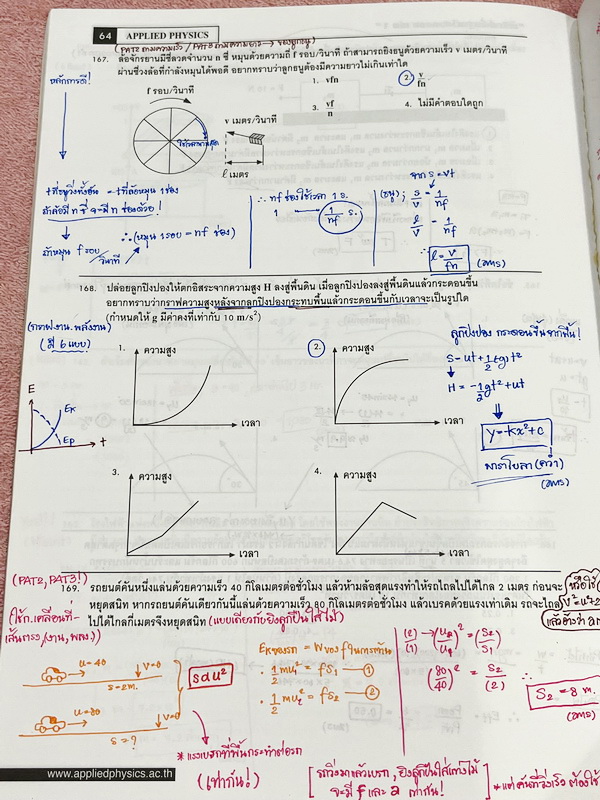 64 APPLIED PHYSICS
167. ล้อจักรยานมีซี่ลวดจำนวน n ซี่ หมุนด้วยความถี่ f รอบ/วินาที ถ้าสามารถยิงธนูด้วยความเร็ว v เมตร/วินาที
ผ่านซี่วงล้อที่กำลังหมุนได้พอดี อยากทราบว่าลูกธนูต้องมีความยาวไม่เกินเท่าใด
หลักการดี!
f รอบ/วินาที
1. vfn
2. v/fn
3. vf/n
4. ไม่มีคำตอบใดถูก
v เมตร/วินาที
ℓ เมตร
t ที่ธนูวิ่งทั้งอัน = t ที่ล้อหมุน 1 ช่อง
ถ้าล้อมี n ซี่ จะมี n ช่องด้วย!
ถ้าหมุน f รอบ/วินาที
∴ (หมุน 1 รอบ = nf ช่อง)
∴ nf ช่องใช้เวลา 1 s.
1 → 1/nf s.
จาก s = vt
(ธนู); s/v = 1/nf
ℓ/v = 1/nf
∴ ℓ = v/fn (ตอบ)
168. ปล่อยลูกปิงปองให้ตกอิสระจากความสูง H ลงสู่พื้นดิน เมื่อลูกปิงปองลงสู่พื้นดินแล้วกระดอนขึ้น
อยากทราบว่ากราฟความสูงหลังจากลูกปิงปองกระทบพื้นแล้วกระดอนขึ้นกับเวลาจะเป็นรูปใด
(กำหนดให้ g มีค่าคงที่เท่ากับ 10 m/s²)
(กราฟงาน-พลังงาน)
(มี 6 แบบ)
1. ความสูง
เวลา
2. ความสูง
เวลา
E
Ek
Ep
t
ลูกปิงปอง กระดอนขึ้นจากพื้น!
S = ut + 1/2 (-g)t²
H = -1/2 gt² + ut
y = -kx² + c
พาราโบลา (คว่ำ)
(ตอบ)
3. ความสูง
เวลา
4. ความสูง
เวลา
(PAT2, PAT3!)
169. รถยนต์คันหนึ่งแล่นด้วยความเร็ว 40 กิโลเมตรต่อชั่วโมง แล้วห้ามล้อสุดแรงทำให้รถไถลไปได้ไกล 2 เมตร ก่อนจะ
หยุดสนิท หากรถยนต์คันเดียวกันนี้แล่นด้วยความเร็ว 80 กิโลเมตรต่อชั่วโมง แล้วเบรคด้วยแรงเท่าเดิม รถจะไถล
ไปได้ไกลกี่เมตรจึงหยุดสนิท (แบบเดียวกับยิงลูกปืนใส่ไม้)
(ใช้ก.เคลื่อนที่-
เส้นตรง, งาน, พลง.)
หรือใช้
u=40
v=0
s=2m.
u=80
v=0
s=?
sαu²
Ek ของรถ = W ของ f ในการต้าน
1/2 mu₁² = fS₁ — ①
1/2 mu₂² = fS₂ — ②
(2)/(1) → (u₂/u₁)² = (S₂/S₁)
(80/40)² = S₂/(2)
∴ S₂ = 8 m.
(ตอบ)
* แรงเบรกที่พื้นกระทำต่อรถ
(เท่ากัน!)
[รถวิ่งมาแล้วเบรก, ยิงลูกปืนใส่แท่งไม้
จะมี f และ a เท่ากัน!]
* แต่คันที่วิ่งเร็ว ต้องใช้
www.appliedphysics.ac.th